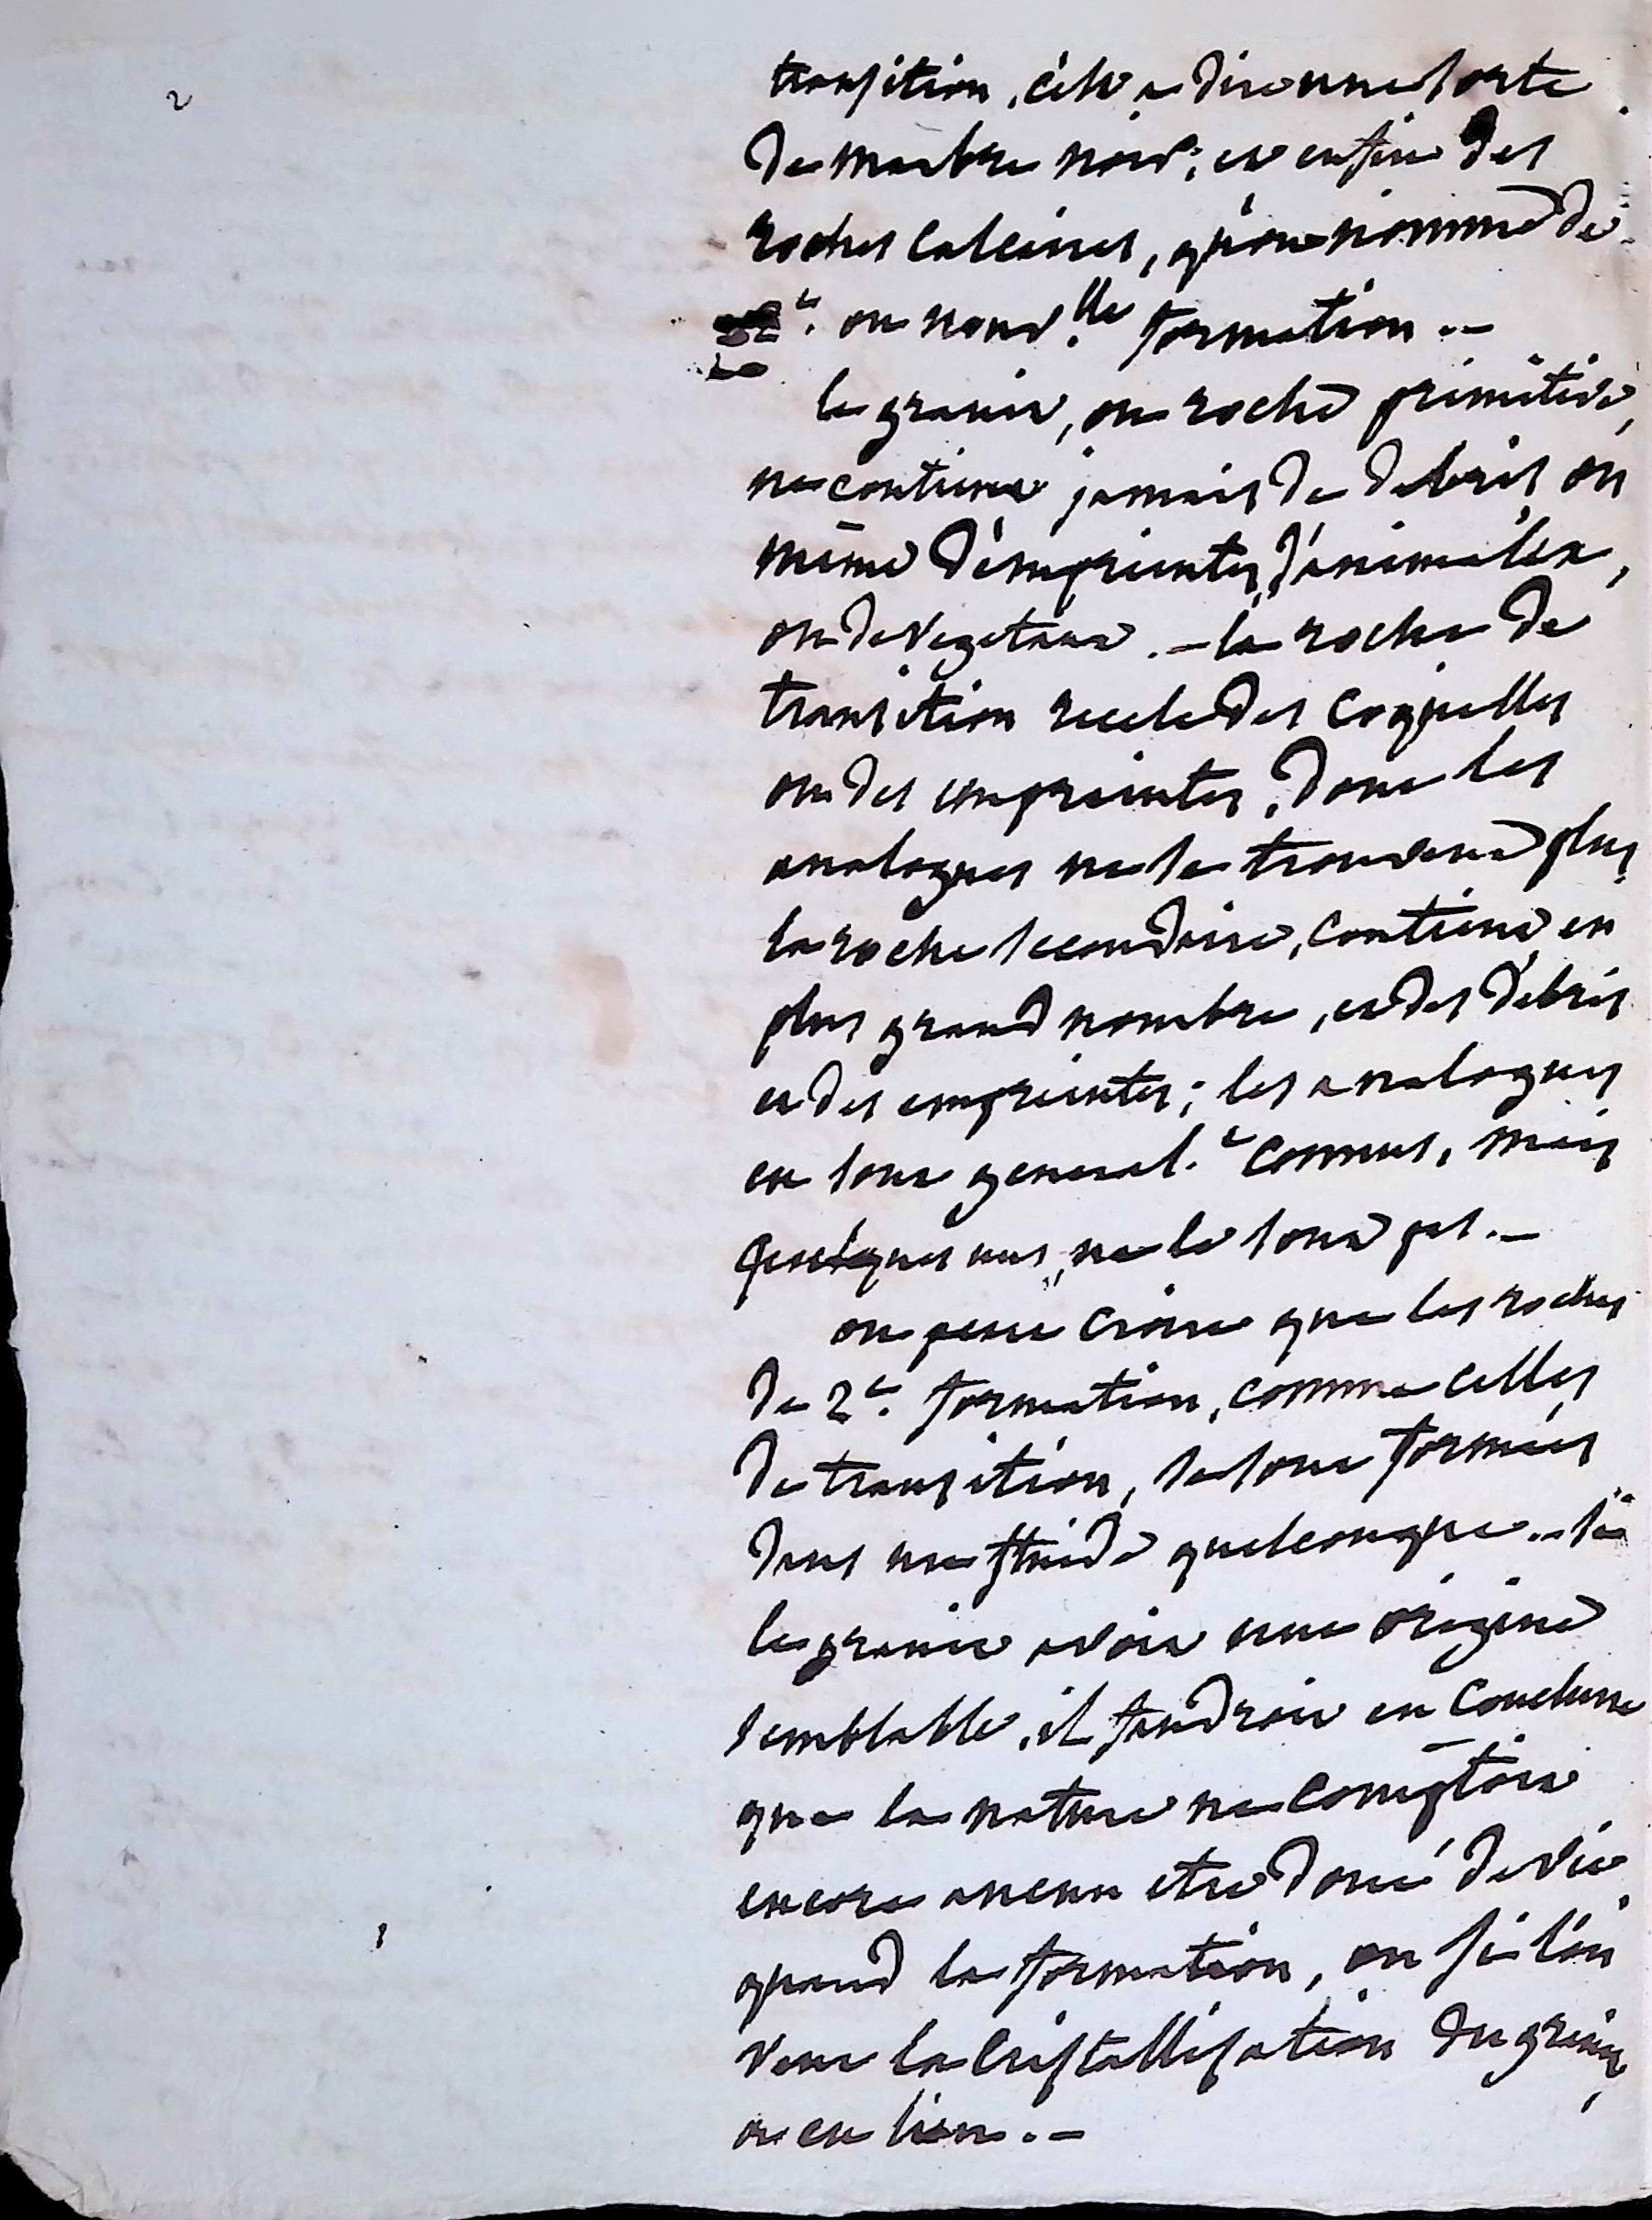 2
transition, c'est a dire une sorte
de marbre noir; et enfin des
roches calcaires, qu'on nomme de
2e. ou nouv.lle formation. –
le granit, ou roche primitive,
ne contient jamais de debris ou
même d'empreintes d'animaux,
ou de vegetaux. – la roche de
transition recele des coquilles
ou des empreintes, dont les
analogues ne se trouvent plus,
la roche secondaire, contient en
plus grand nombre, et des debris
et des empreintes; les analogues
en sont general.t connus, mais
quelques uns, ne le sont pas. –
on peut croire que les roches
de 2e. formation, comme celles
de transition, se sont formées
dans un fluide quelconque. – si
le granit avoit une origine
semblable, il faudroit en conclure
que la nature ne comptoit
encore aucun etre doué de vie
quand la formation, ou si l'on
veut la cristallisation du granit,
a eu lieu. –